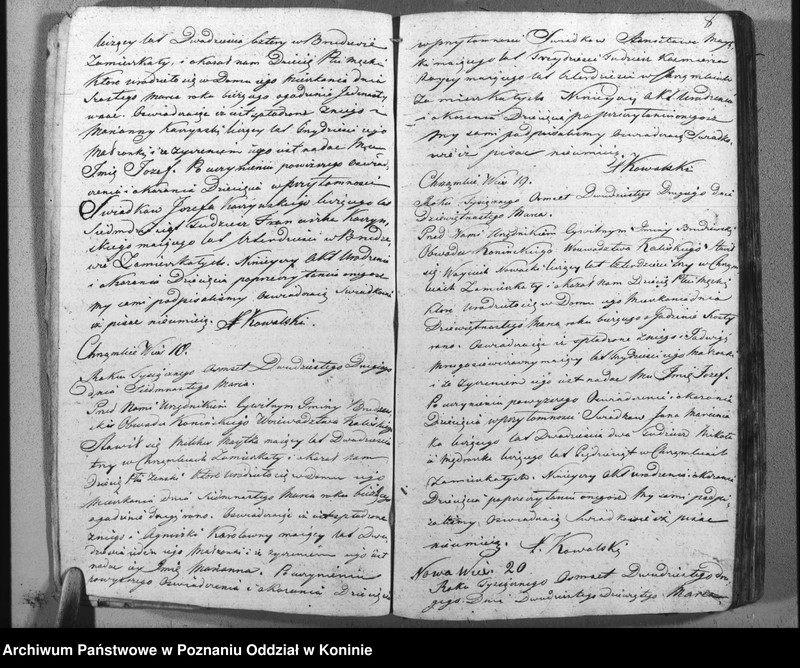 liczący lat Dwadzieścia Cztery w Brudzewie
Zamieszkały, i okazał nam Dziecię Płci Męski
Które urodziło się w Domu iego Mieszkania dnia
Szostego Marca roku bieżącego ogodzinie Jedenasty
w noc. Oswiadczając iż iest spłodzone z niego z
Maryanny liczący lat iego
Małżonki, i że życzeniem iego iest nadać Mu
Imię Jozef. Po uczynieniu powyższego oswiad
czenia i okazania Dziecięcia w przytomności
Swiadkow Jozefa liczącego lat
tudzież Franciszka
mającego lat Czterdzieści w Brudze
wie Zamieszkałych. Ninieyszy Akt Urodzenia
i okazania Dziecięcia po przeczytaniu onegoż
my sami podpisaliśmy Oswiadczają Swiadkowie
iż pisać nieumieią. Kowalski.
Wieś 18.
Roku Tysiącznego Osmset Dwudziestego Drugiego
dnia Siedmnastego Marca.
Przed Nami Urzędnikiem Cywilnym Gminy Brudzew
skie Obwodu Konińskiego Woiewództwa Kaliskiego
Stawił się mający lat Dwadzieścia
trzy w Zamieszkały i okazał nam
Dziecię Płci Żenski Które urodziło się w domu iego
Mieszkania dnia Siedmnastego Marca roku bieżącego
ogodzinie drugi rano. Oswiadczając iż iest spłodzone
z niego i Agnieszki mający lat dwa
dzieścia ieden iego Małżonki i że życzeniem iego iest
nadać iey Imię Marianna. Po uczynieniu
powyższego Oswiadczenia i okazania Dziecięcia
8
w przytomności Swiadkow Stanisława
mającego lat Trzydzieści tudzież Kazmierza
mającego lat Czterdzieści w
Zamieszkałych Ninieyszy Akt Urodzenia
i okazania Dziecięcia po przeczytaniu onegoż
My sami podpisaliśmy Oswiadczają Swiadko
wie iż pisać nieumieią.
Kowalski
Wieś 19.
Roku Tysiącznego Osmset Dwudziestego Drugiego dnia
Dziewiętnastego Marca.
Przed Nami Urzędnikiem Cywilnym Gminy Brudzewski
Obwodu Konińskiego Woiewództwa Kaliskiego Stawił
się Woyciech Nowacki liczący lat Czterdzieści trzy w
Zamieszkały i okazał nam Dziecię Płci Męski
Które urodziło się w Domu iego Mieszkania dnia
Dziewiętnastego Marca roku bieżącego o Godzinie Szosty
rano. Oswiadczając iż spłodzone z niego i Jadwigi
mający lat trzydzieści iego Małżonki
i że życzeniem iego iest nadać Mu Imię Jozef.
Po uczynieniu powyższego Oswiadczenia i okazania
Dziecięcia w przytomności Swiadkow Jana Marcinia
ka liczącego lat Dwadzieścia dwa tudzież Mikoła
ia liczącego lat w
Zamieszkałych. Ninieyszy Akt urodzenia i okazania
Dziecięcia po przeczytaniu onegoż My sami podpi
saliśmy Oswiadczają Swiadkowie iż pisać
nieumieią. Kowalski
Nowa Wieś. 20
Roku Tysiącznego Osmset Dwudziestego Dru
giego Dnia Dwudziestego Dziewiątego Marca
Archiwum Państwowe w Poznaniu Oddział w Koninie